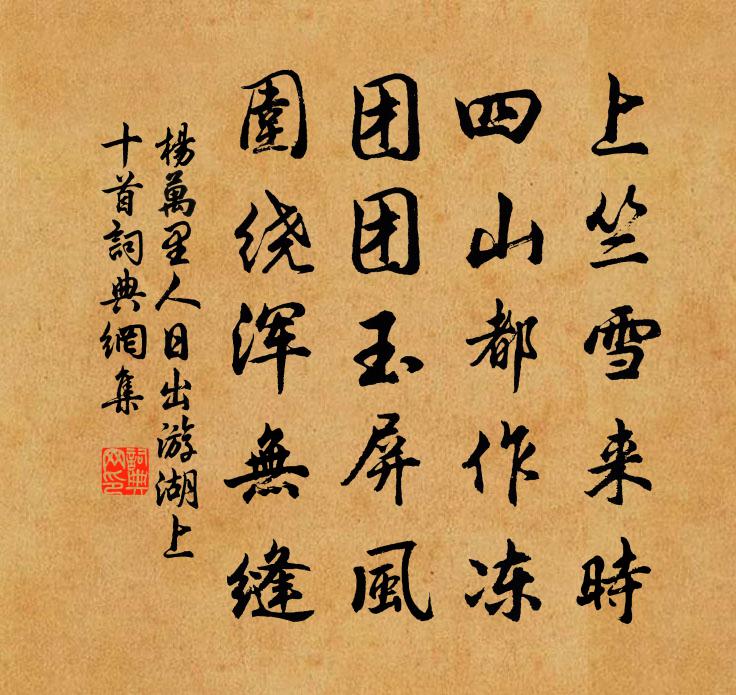 上竺雪来時
四山都作冻
团团玉屏風
圍绕浑無縫
楊萬里人日出游湖上
十首詞典網集
詞典
網印